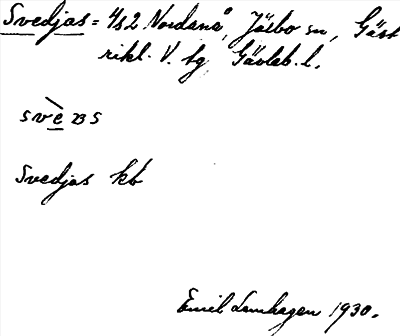 Svedjas = 4/s2 Nordanå, Järbo sn, Gäst
rikl. V. tg Gävleb. l.
svè
Svedjas kb
Emil Lomhagen 1930.